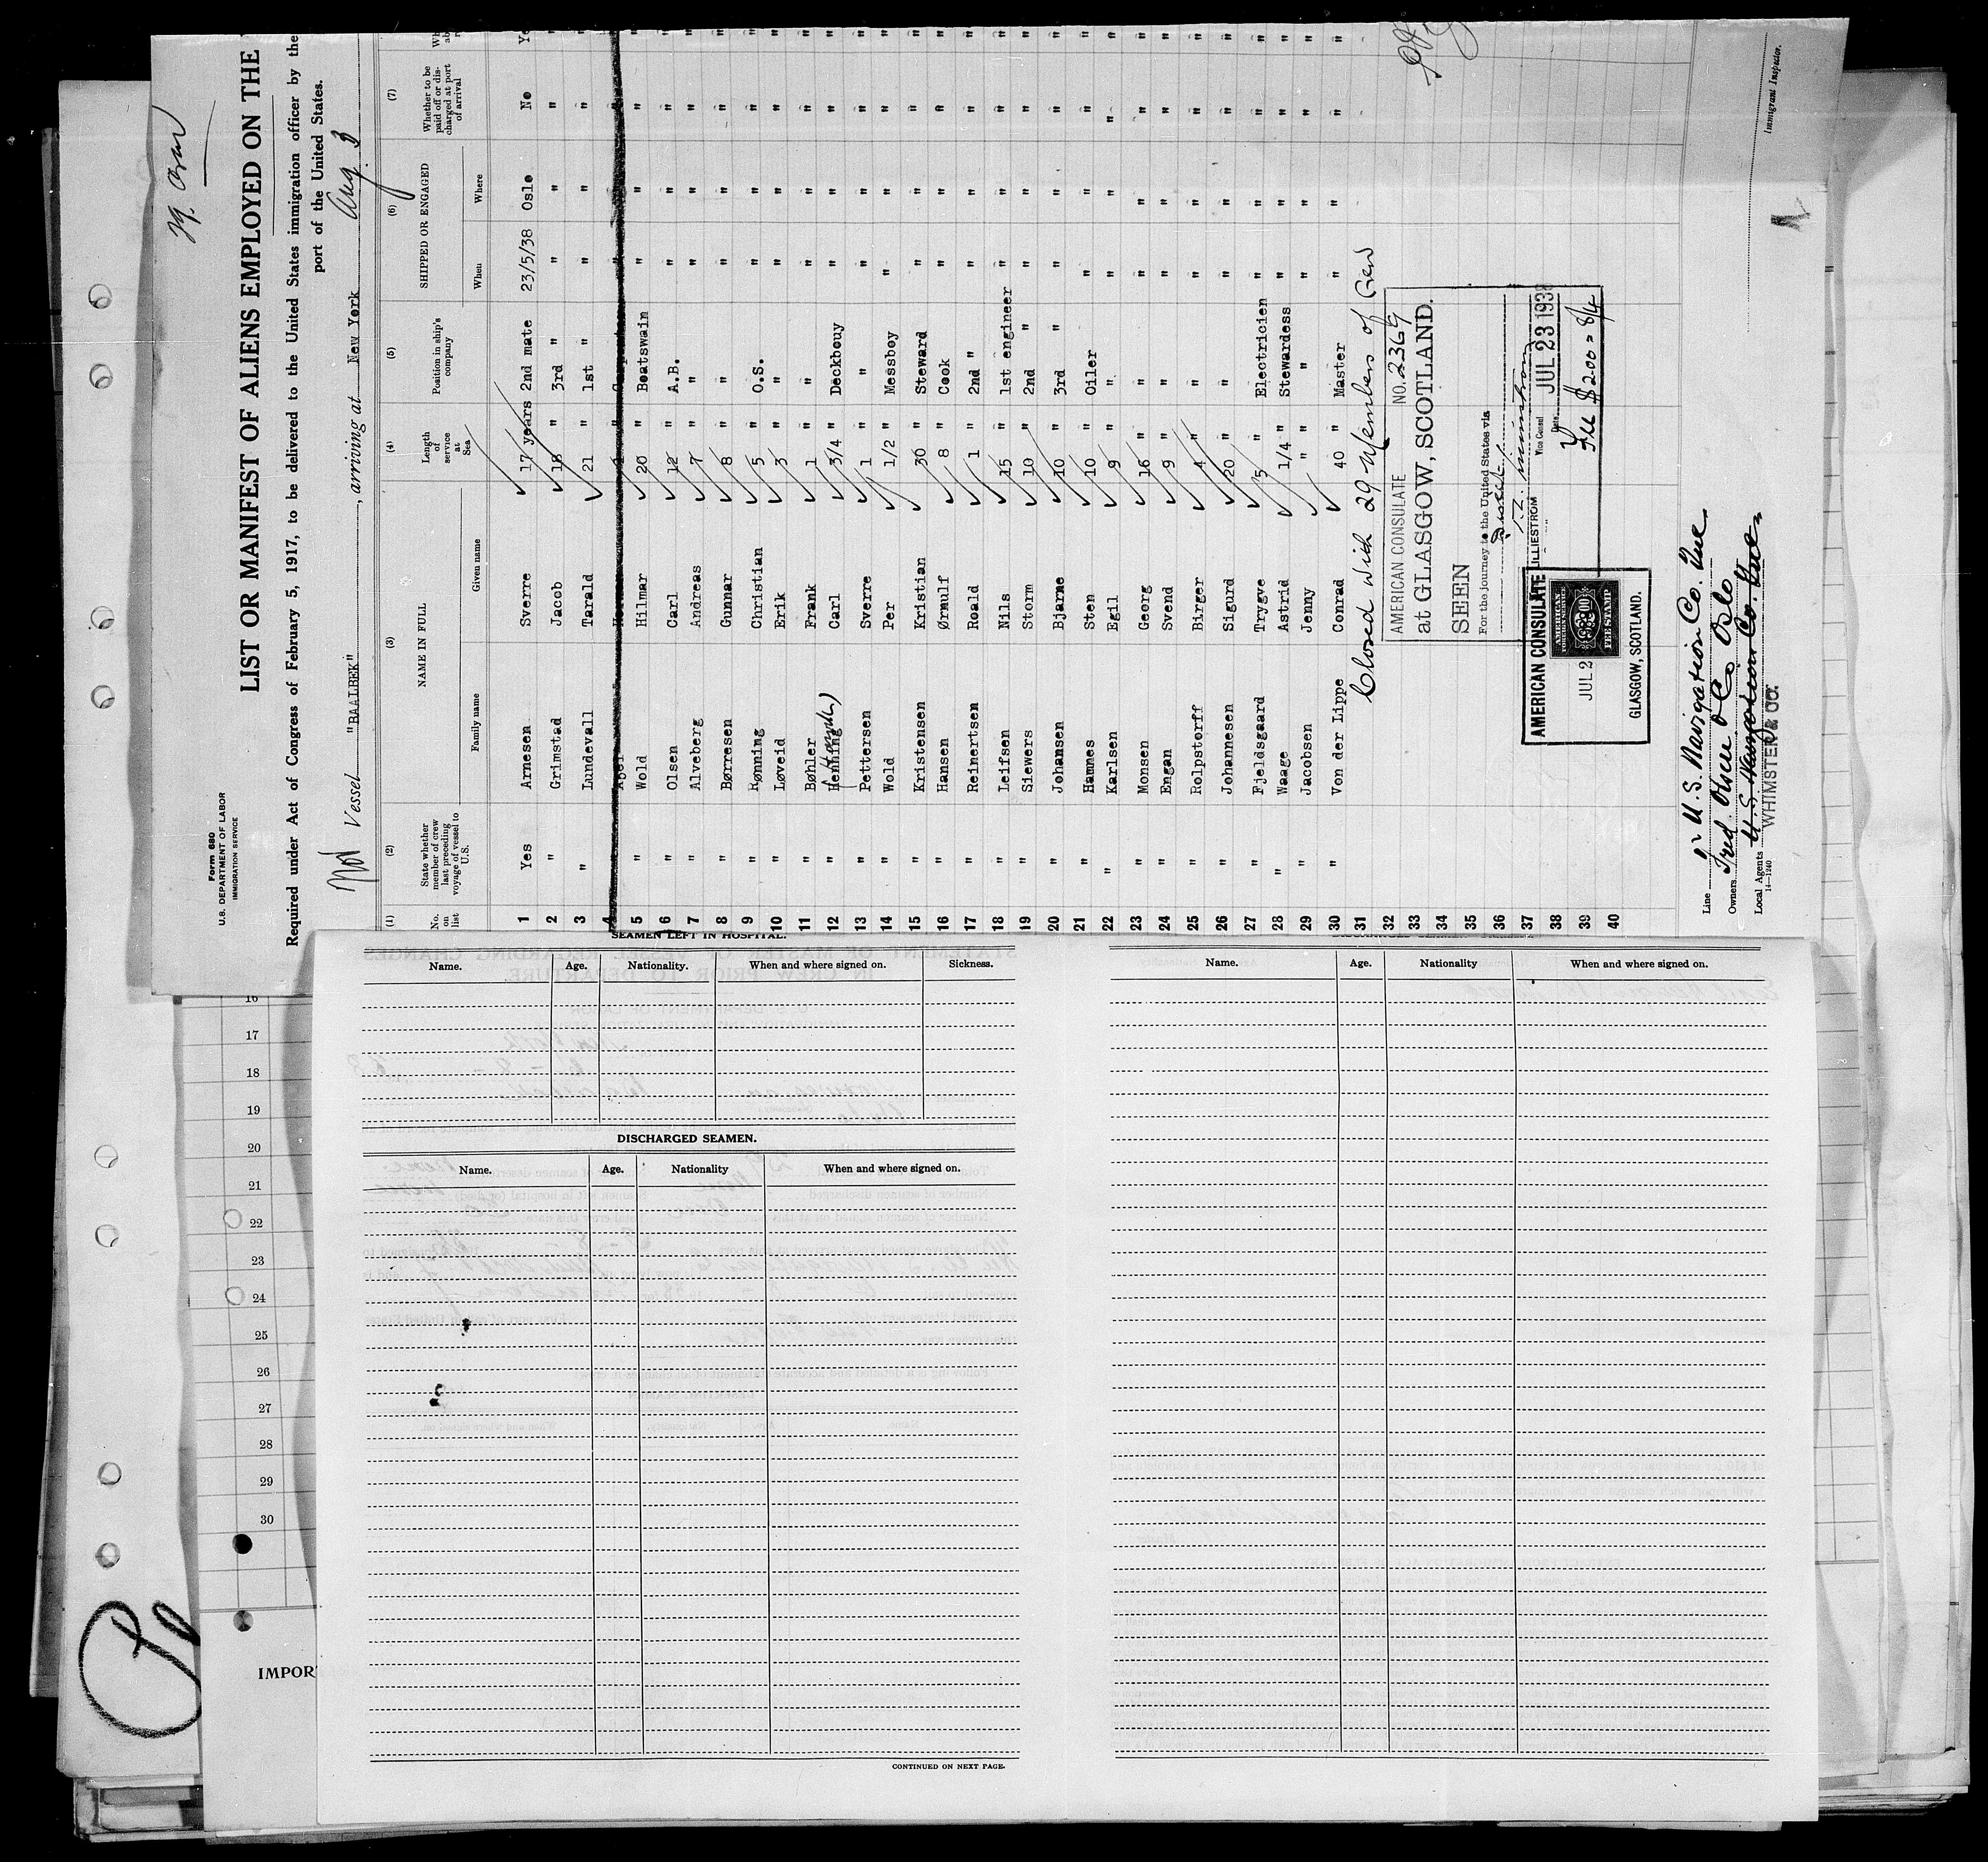 Form 680
U.S. DEPARTMENT OF LABOR
IMMIGRATION SERVICE
LIST OR MANIFEST OF ALIENS EMPLOYED ON THE
Required under Act of Congress of February 5, 1917, to be delivered to the United States immigration officer by the
port of the United States.
Vessel "BAALBEK", arriving at New York Aug 3
(1) (2) (3) (4) (5) (6) (7)
No. on list State whether member of crew last preceding voyage of vessel to U.S. NAME IN FULL Length of service at Sea Position in ship's company SHIPPED OR ENGAGED Whether to be paid off or discharged at port of arrival
Family name Given name When Where
1 Yes Arnesen Sverre 17 years 2nd mate 23/5/38 Oslo No
2 " Grimstad Jacob 18 " 3rd " " " "
3 " Lundevall Tarald 21 " 1st " " " "
4
5 " Wold Hilmar 20 " Boatswain " " "
6 " Olsen Carl 12 " A.B. " " "
7 " Alveberg Andreas 7 " " " " "
8 " Børresen Gunnar 8 " " " " "
9 " Rønning Christian 5 " O.S. " " "
10 " Løveid Erik 3 " " " " "
11 " Bøhler Frank 1 " " " " "
12 " Henning Carl 3/4 " Deckbouy " " "
13 " Pettersen Sverre 1 " " " " "
14 " Wold Per 1/2 " Messboy " " "
15 " Kristensen Kristian 30 " Steward " " "
16 " Hansen Ørnulf 8 " Cook " " "
17 " Reinertsen Roald 1 " 2nd " " " "
18 " Leifsen Nils 15 " 1st engineer " " "
19 " Siewers Storm 10 " 2nd " " " "
20 " Johansen Bjarne 10 " 3rd " " " "
21 " Hamnes Sten 10 " Oiler " " "
22 " Karlsen Egil 9 " " " " "
23 " Monsen Georg 16 " " " " "
24 " Engan Svend 9 " " " " "
25 " Rolpstorff Birger 4 " " " " "
26 " Johannesen Sigurd 20 " " " " "
27 " Fjeldsgaard Trygve 5 " Electricien " " "
28 " Waage Astrid 1/4 " Stewardess " " "
29 " Jacobsen Jenny " " " " " "
30 " Von der Lippe Conrad 40 " Master " " "
31 Closed with 29 Members of Crew
32
33
34
35
36
37
38
39
40
AMERICAN CONSULATE NO. 2369
at GLASGOW, SCOTLAND.
SEEN
For the journey to the United States via
Vice Consul
Date JUL 23 1938
Fee $2.00 = 8/4
AMERICAN CONSULATE
AMERICAN
FEE STAMP
JUL 2
GLASGOW, SCOTLAND.
Line U.S. Navigation Co. Inc.
Owners Fred. Olsen & Co Oslo
Local Agents U.S. Navigation Co. Inc.
WHIMSTER & CO.
14—1240
Immigrant Inspector.
SEAMEN LEFT IN HOSPITAL.
Name. Age. Nationality. When and where signed on. Sickness.
DISCHARGED SEAMEN.
Name. Age. Nationality When and where signed on.
CONTINUED ON NEXT PAGE.
Name. Age. Nationality When and where signed on.
16
17
18
19
20
21
22
23
24
25
26
27
28
29
30
IMPOR